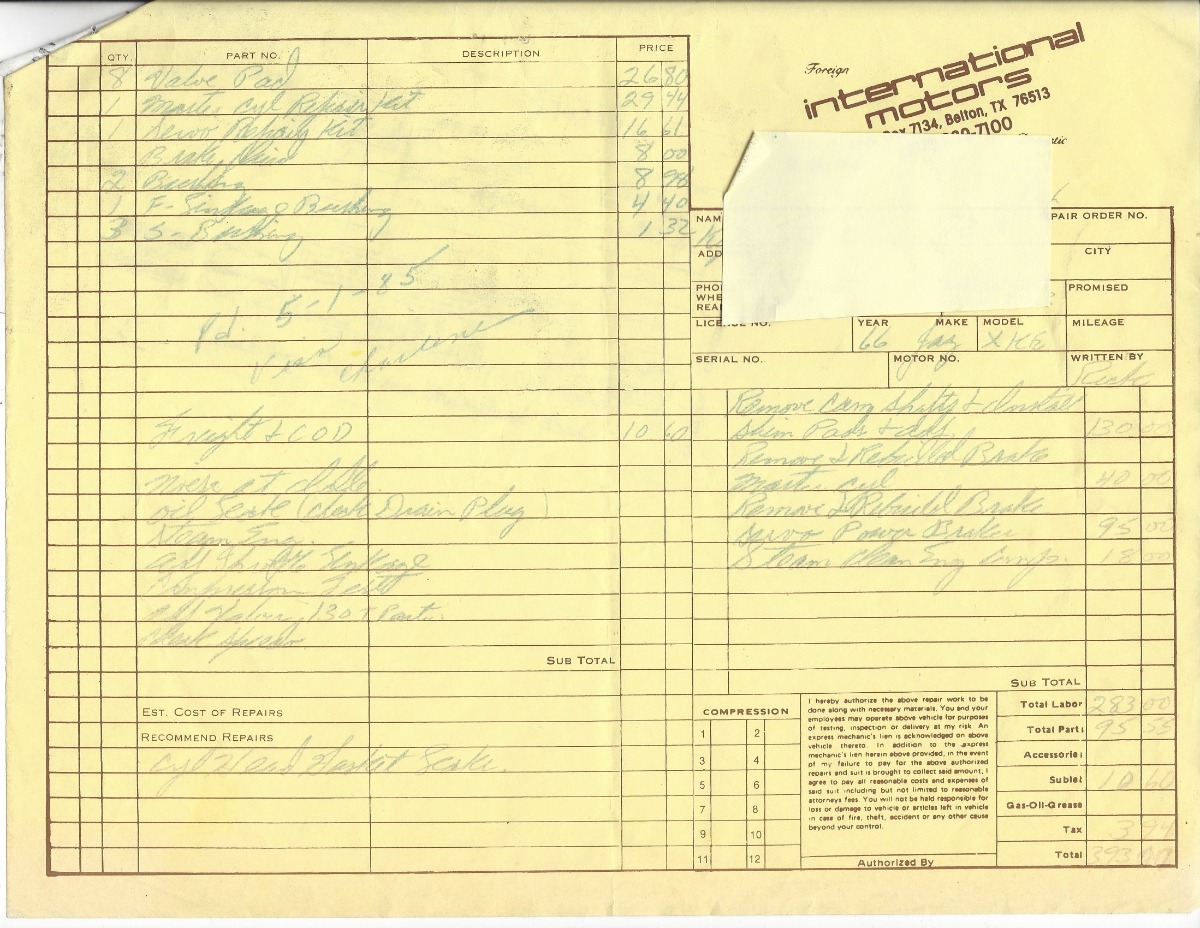 QTY. PART NO. DESCRIPTION PRICE
8 Valve Pad 26 80
1 Master Cyl Repair Kit 29 44
1 Servo Repair Kit 16 61
Brake 8 00
2 Bushing 8 98
1 F- Linkage Bushing 4 40
3 S- Bushing 1 32
Pd. 5-1-85
Visa Charlene
Freight & COD 10 60
at Idle
Oil Leak (Check Drain Plug)
Steam Eng.
Adj Throttle Linkage
Compression Test
Adj Valves 130 + Parts
Check
SUB TOTAL
EST. COST OF REPAIRS
RECOMMEND REPAIRS
Cyl Head Gasket Leaks
Foreign
international
motors
7134, Belton, TX 76513
0-7100
NAM
PAIR ORDER NO.
ADD
CITY
PHO
WHE
REA
PROMISED
LICENSE NO. YEAR MAKE MODEL MILEAGE
66 Jag XKE
SERIAL NO. MOTOR NO. WRITTEN BY
Rick
Remove Cam Shafts & Install
Shim Pads & Adj. 130 00
Remove & Rebuild Brake
Master Cyl 40 00
Remove & Rebuild Brake
Servo Power Brakes 95 00
Steam Clean Eng Comp. 18 00
SUB TOTAL
COMPRESSION
1 2
3 4
5 6
7 8
9 10
11 12
I hereby authorize the above repair work to be
done along with necessary materials. You and your
employees may operate above vehicle for purposes
of testing, inspection or delivery at my risk. An
express mechanic's lien is acknowledged on above
vehicle thereto. In addition to the express
mechanic's lien herein above provided, in the event
of my failure to pay for the above authorized
repairs and suit is brought to collect said amount, I
agree to pay all reasonable costs and expenses of
said suit including but not limited to reasonable
attorneys fees. You will not be held responsible for
loss or damage to vehicle or articles left in vehicle
in case of fire, theft, accident or any other cause
beyond your control.
Authorized By
Total Labor 283 00
Total Parts 95 55
Accessories
Sublet 10 60
Gas-Oil-Grease
Tax 3 94
Total 393 09